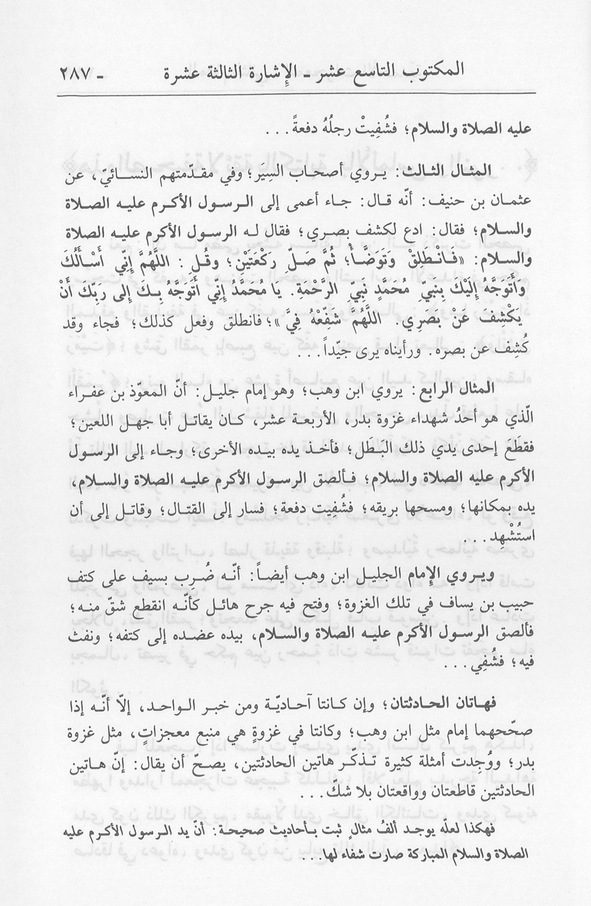 المكتوب التاسع عشر ـ الإشارة الثالثة عشرة ـ ٢٨٧
عليه الصلاة والسلام؛ فشُفِيتْ رجلُهُ دفعةً...
المثال الثالث: يروي أصحاب السِيَر؛ وفي مقدّمتهم النسائيّ، عن
عثمان بن حنيف: أنّه قال: جاء أعمى إلى الرسول الأكرم عليه الصلاة
والسلام؛ فقال: ادع لكشف بصري؛ فقال له الرسول الأكرم عليه الصلاة
والسلام: «فَانْطَلِقْ وَتَوَضَّأْ؛ ثُمَّ صَلِّ رَكْعَتَيْنِ؛ وَقُلِ: اللَّهُمَّ إِنِّي أَسْأَلُكَ
وَأَتَوَجَّهُ إِلَيْكَ بِنَبِيِّ مُحَمَّدٍ نَبِيِّ الرَّحْمَةِ. يَا مُحَمَّدُ إِنِّي أَتَوَجَّهُ بِكَ إِلى رَبِّكَ أَنْ
يَكْشِفَ عَنْ بَصَرِي. اللَّهُمَّ شَفِّعْهُ فِيَّ»؛ فانطلق وفعل كذلك؛ فجاء وقد
كُشِف عن بصره. ورأيناه يرى جيّداً...
المثال الرابع: يروي ابن وهب؛ وهو إمام جليل: أنّ المعوّذ بن عفراء
الّذي هو أحدُ شهداء غزوة بدر، الأربعة عشر، كان يقاتل أبا جهل اللعين؛
فقطَعَ إحدى يدي ذلك البَطَل؛ فأخذ يده بيده الأخرى؛ وجاء إلى الرسول
الأكرم عليه الصلاة والسلام؛ فألصق الرسول الأكرم عليه الصلاة والسلام،
يده بمكانها؛ ومسحها بريقه؛ فشُفِيت دفعة؛ فسار إلى القتال؛ وقاتل إلى أن
استُشْهِد...
ويروي الإمام الجليل ابن وهب أيضاً: أنّه ضُرِب بسيف على كتف
حبيب بن يساف في تلك الغزوة؛ وفتح فيه جرح هائل كأنّه انقطع شقّ منه؛
فألصق الرسول الأكرم عليه الصلاة والسلام، بيده عضده إلى كتفه؛ ونفث
فيه؛ فشُفِي...
فهاتان الحادثتان؛ وإن كانتا آحاديّة ومن خبر الواحد، إلّا أنّه إذا
صحّحهما إمام مثل ابن وهب؛ وكانتا في غزوةٍ هي منبع معجزاتٍ، مثل غزوة
بدر؛ ووُجِدت أمثلة كثيرة تذكّر هاتين الحادثتين، يصحّ أن يقال: إنّ هاتين
الحادثتين قاطعتان وواقعتان بلا شكّ...
فهكذا لعلّه يوجد ألفُ مثالٍ ثبت بأحاديث صحيحة: أنّ يد الرسول الأكرم عليه
الصلاة والسلام المباركة صارت شفاء لها...